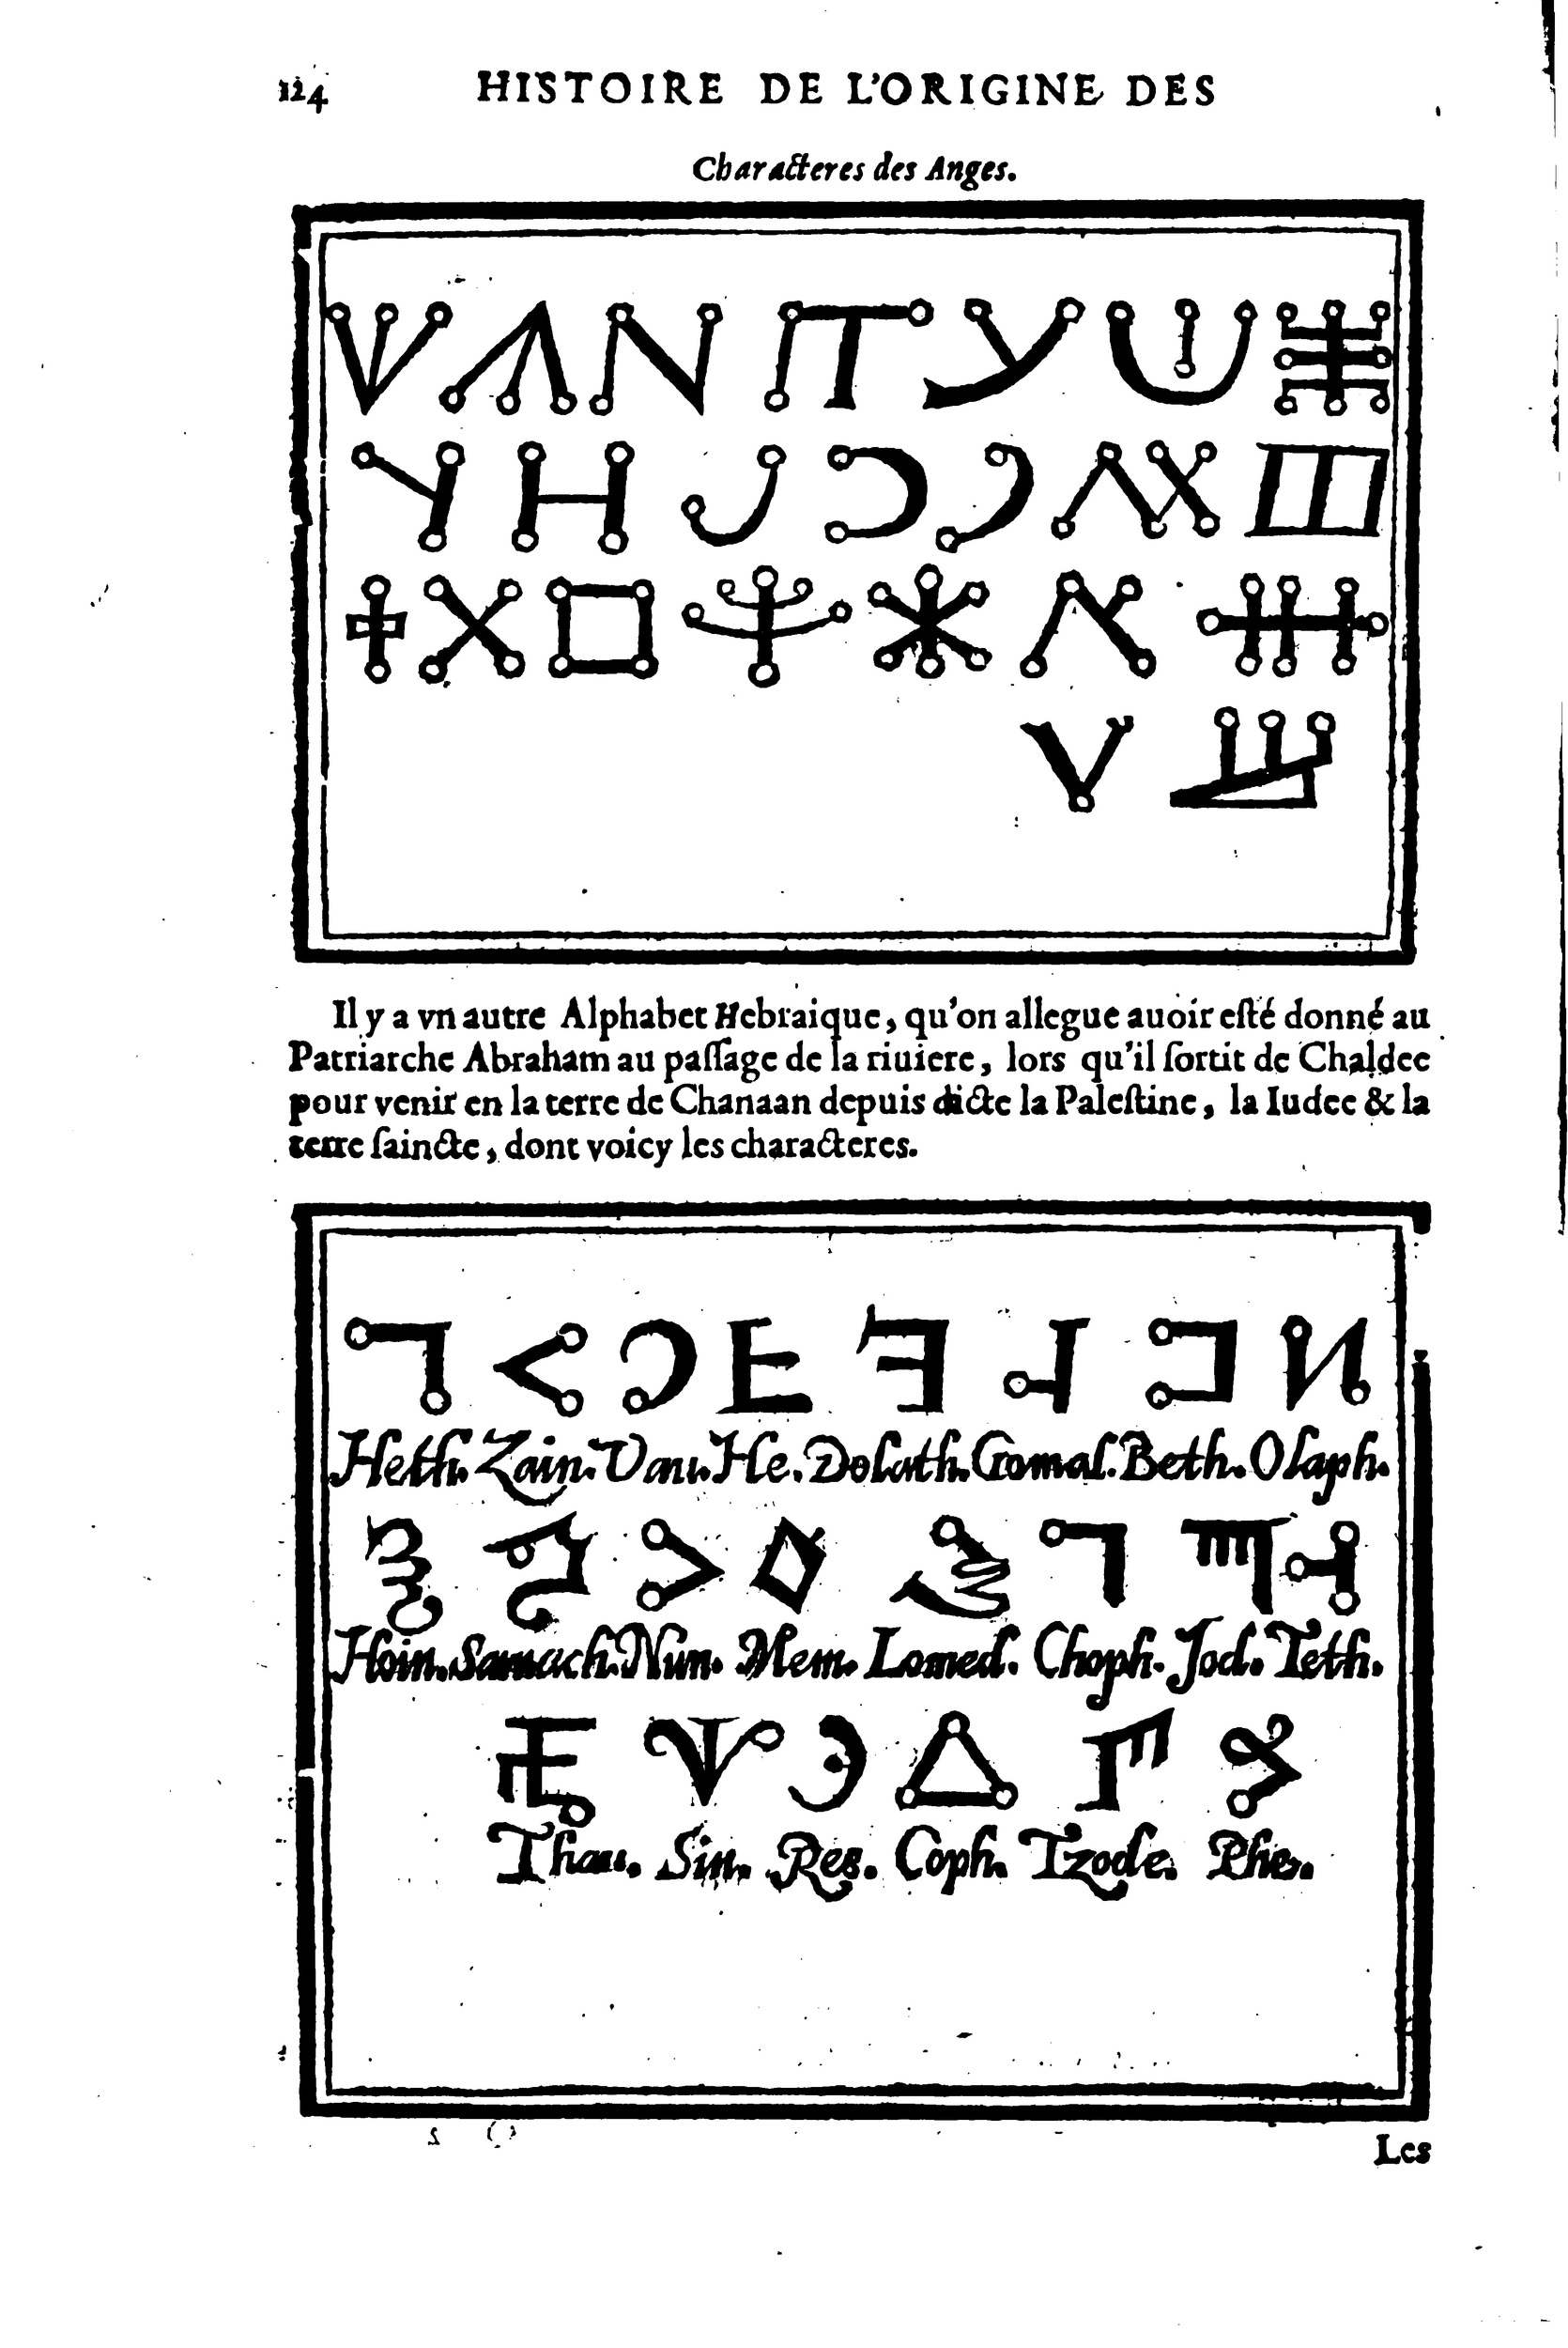 124 HISTOIRE DE L'ORIGINE DES
Characteres des Anges.
Il y a vn autre Alphabet Hebraique, qu'on allegue auoir eſté donné au
Patriarche Abraham au paſſage de la riuiere, lors qu'il ſortit de Chaldee
pour venir en la terre de Chanaan depuis dicte la Paleſtine, la Iudee & la
terre ſaincte, dont voicy les characteres.
Heth. Zain. Vau. He. Dolath. Gomal. Beth. Olaph.
Hoin. Samach. Nun. Mem. Lomed. Choph. Jod. Teth.
Thau. Sin. Res. Coph. Tzode. Phe.
Les